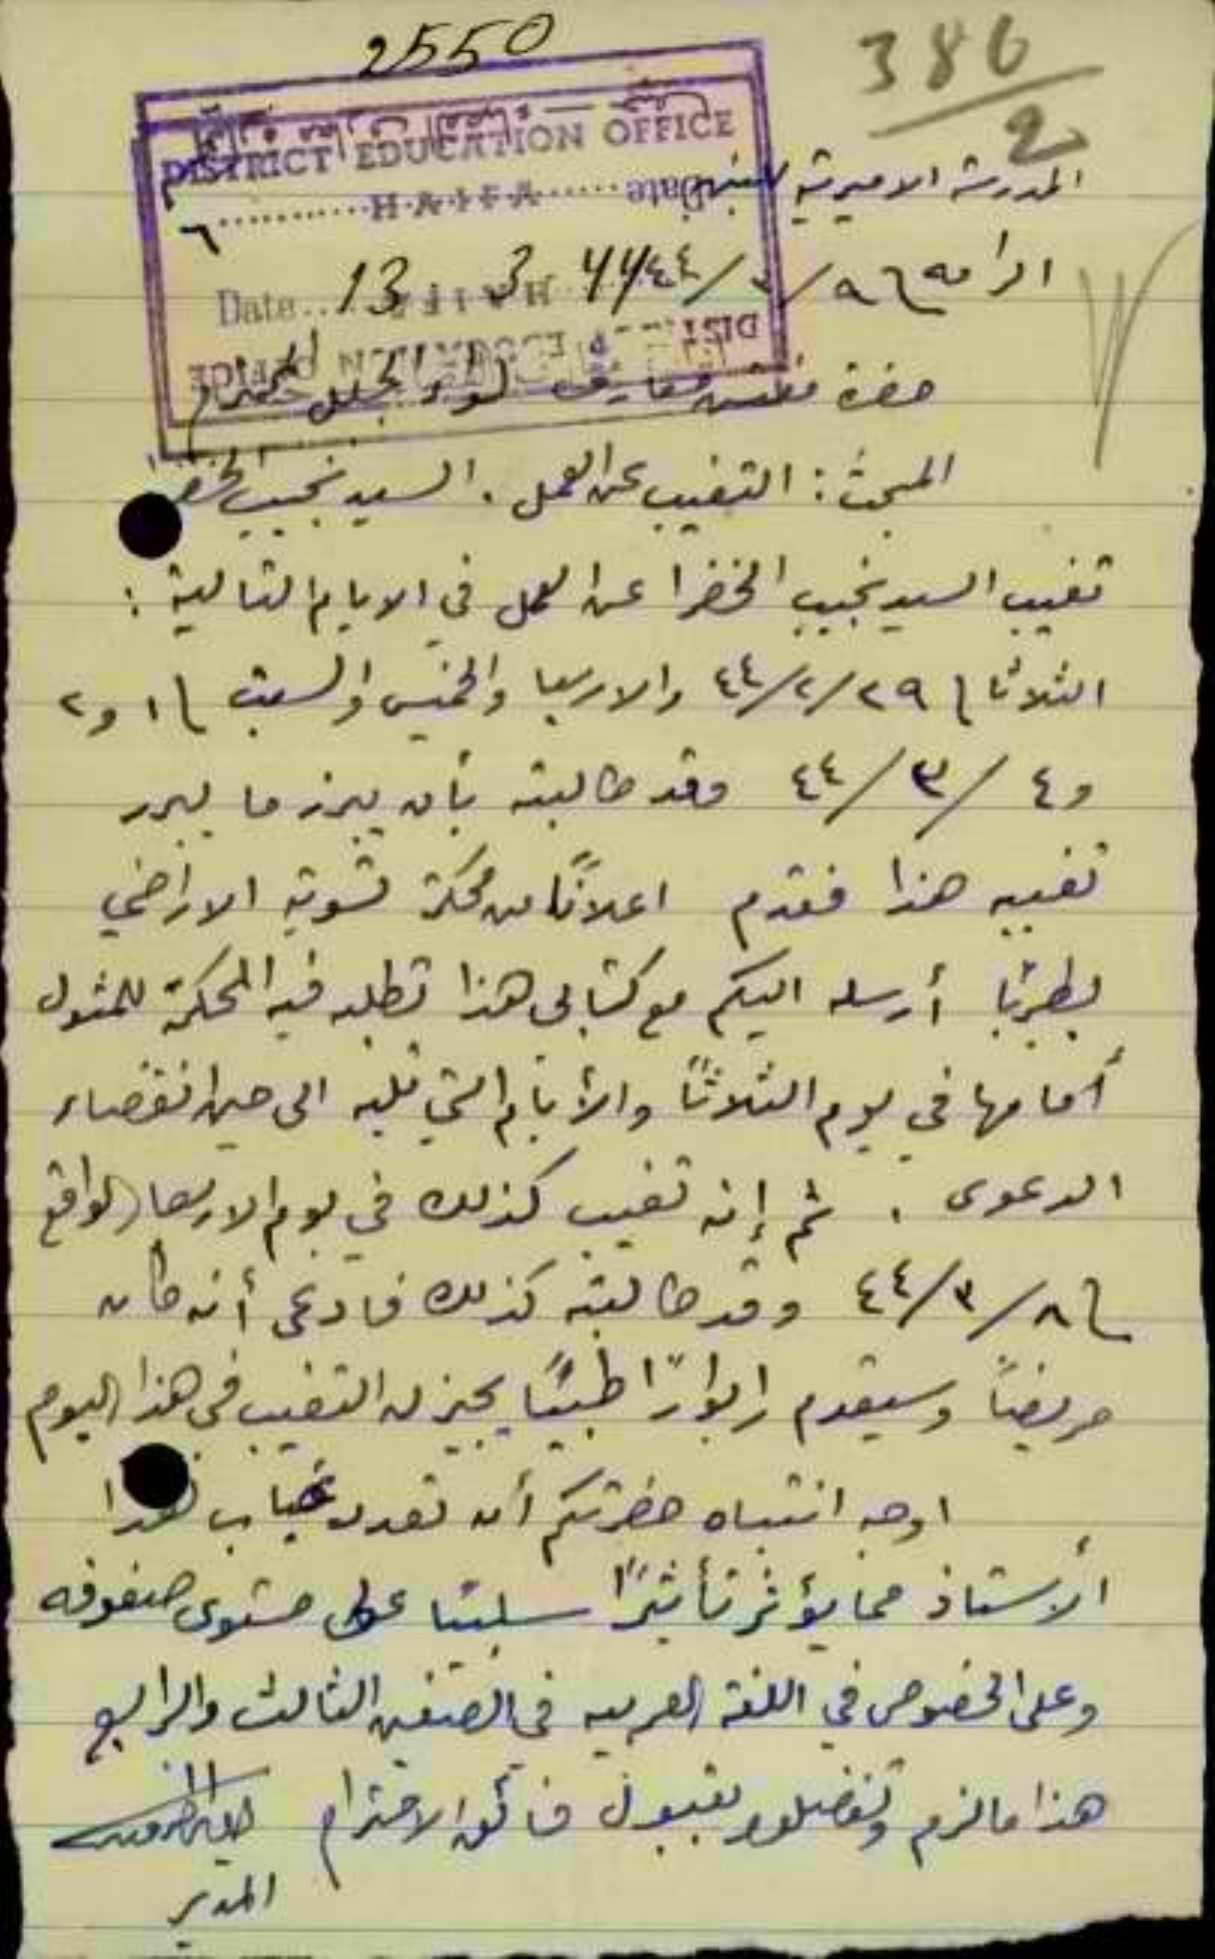 2550
386
2
DISTRICT EDUCATION OFFICE
HAIFA
Date
Date 13 3 44
HAIFA
DISTRICT EDUCATION OFFICE
المدرسة الاميرية للبنين
الرامه في ٩/٣/٤٤
حضرة مفتش معارف لواء الجليل المحترم
المبحث : التغيب عن العمل . السيد نجيب الخضرا
تغيب السيد نجيب الخضرا عن العمل في الايام التالية :
الثلاثا في ٢٩/٢/٤٤ والاربعا والخميس والسبت في ١ و٢
و٤ /٣/ ٤٤ وقد طالبته بأن يبرز ما يبرر
تغيبه هذا فقدم اعلانًا من محكمة تسوية الاراضي
بطبريّا أرسله اليكم مع كتابي هذا تطلبه فيه المحكمة للمثول
أمامها في يوم الثلاثا والأيام التي تليه الى حين انقضاء
الدعوى . ثم إنه تغيب كذلك في يوم الاربعا الواقع
في ٨/٣/٤٤ وقد طالبته كذلك فادعى أنه كان
مريضاً وسيقدم رابورًا طبيًا يجيز له التغيب في هذا اليوم
اوجه انتباه حضرتكم أن تعدد غياب هذا
الأستاذ مما يؤثر تأثيرًا سلبيًا على مستوى صفوفه
وعلى الخصوص في اللغة العربيه في الصفين الثالث والرابع
هذا ما لزم وتفضلوا بقبول فائق الاحترام
المدير